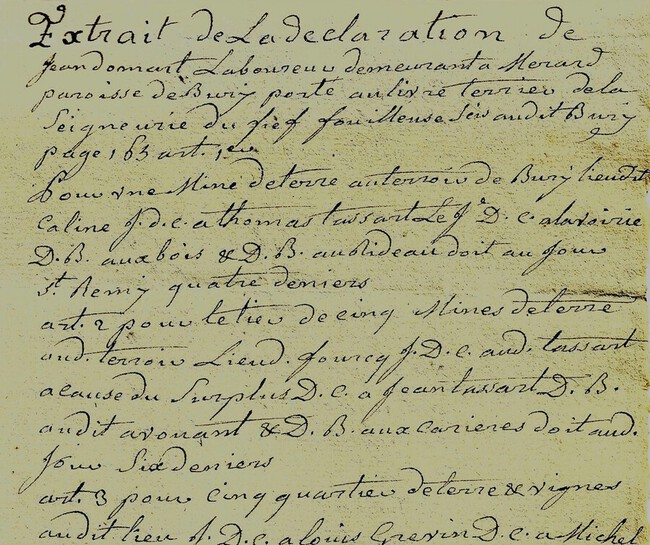 Extrait de La declaration de
Jean domart Laboureur demeurant a Morard
paroisse de Bury porté au livre terrier de la
Seigneurie du fief fouilleuse Sis audit Bury
page 163 art. 1er
Pour vne Mine de terre au terroir de Bury lieudit
Caline J. d. c. a thomas tassart Le Je D. C. alavoirie
D. B. aux bois & D. B. au Rideau doit au Jour
St. Remy quatre deniers
art. 2 pour le tier de cinq Mines de terre
aud. terroir Lieud. fourcq J. D. C. aud. tassart
a cause du Surplus D. C. a Jean tassart D. B.
audit avouant & D. B. aux carieres doit aud.
Jour Six deniers
art. 3 pour Cinq quartier de terre & vignes
audit lieu J. D. C. a louis Grevin D. C. a Michel